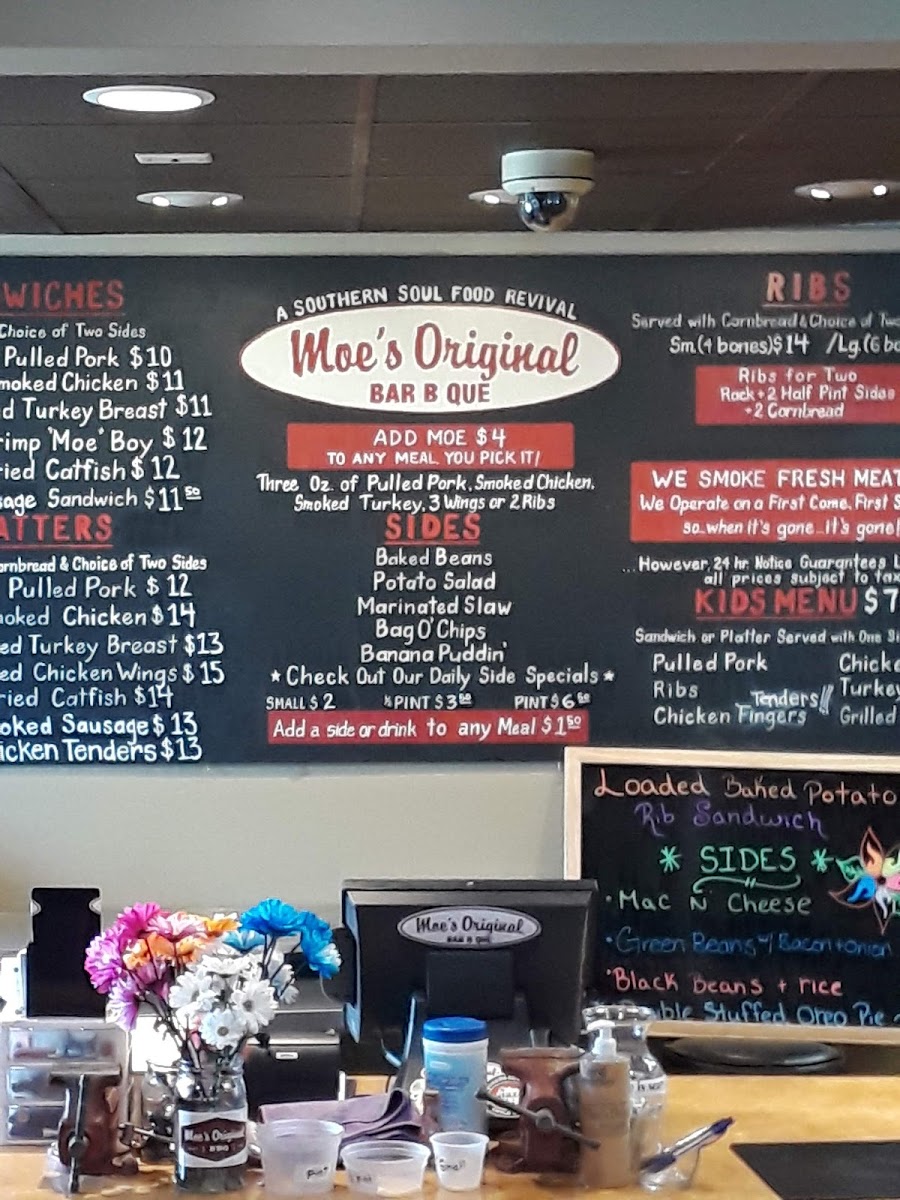 WICHES
Choice of Two Sides
Pulled Pork $10
moked Chicken $11
d Turkey Breast $11
rimp 'Moe' Boy $12
ried Catfish $12
sage Sandwich $11 50
ATTERS
ornbread & Choice of Two Sides
Pulled Pork $12
moked Chicken $14
ed Turkey Breast $13
ed Chicken Wings $15
ried Catfish $14
oked Sausage $13
icken Tenders $13
A SOUTHERN SOUL FOOD REVIVAL
Moe's Original
BAR B QUE
ADD MOE $4
TO ANY MEAL YOU PICK IT!
Three Oz. of Pulled Pork, Smoked Chicken,
Smoked Turkey, 3 Wings or 2 Ribs
SIDES
Baked Beans
Potato Salad
Marinated Slaw
Bag O' Chips
Banana Puddin'
* Check Out Our Daily Side Specials *
SMALL $2 ½ PINT $3 50 PINT $6 50
Add a side or drink to any Meal $1 50
RIBS
Served with Cornbread & Choice of Two
Sm.(4 bones)$14 /Lg.(6 bo
Ribs for Two
Rack + 2 Half Pint Sides
+ 2 Cornbread
WE SMOKE FRESH MEAT
We Operate on a First Come, First S
so...when it's gone...it's gone!
...However, 24 hr. Notice Guarantees
all prices subject to tax
KIDS MENU $7
Sandwich or Platter Served with One Si
Pulled Pork Chicke
Ribs Tenders Turkey
Chicken Fingers Grilled
Loaded Baked Potato
Rib Sandwich
* SIDES *
• Mac N Cheese
• Green Beans w/ Bacon + onion
• Black Beans + rice
ble Stuffed Oreo Pie
Moe's Original
BAR B QUE
Moe's Original
BBQ
Pint
Small